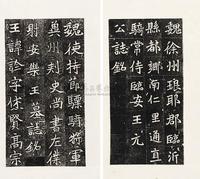 魏徐州琅耶郡臨沂
縣都鄉南仁里通直
散騎常侍臨安王元
公誌銘
魏使持節驃騎將軍
冀州刺史尚書左僕
射安樂王墓誌銘
王諱詮字休賢高宗